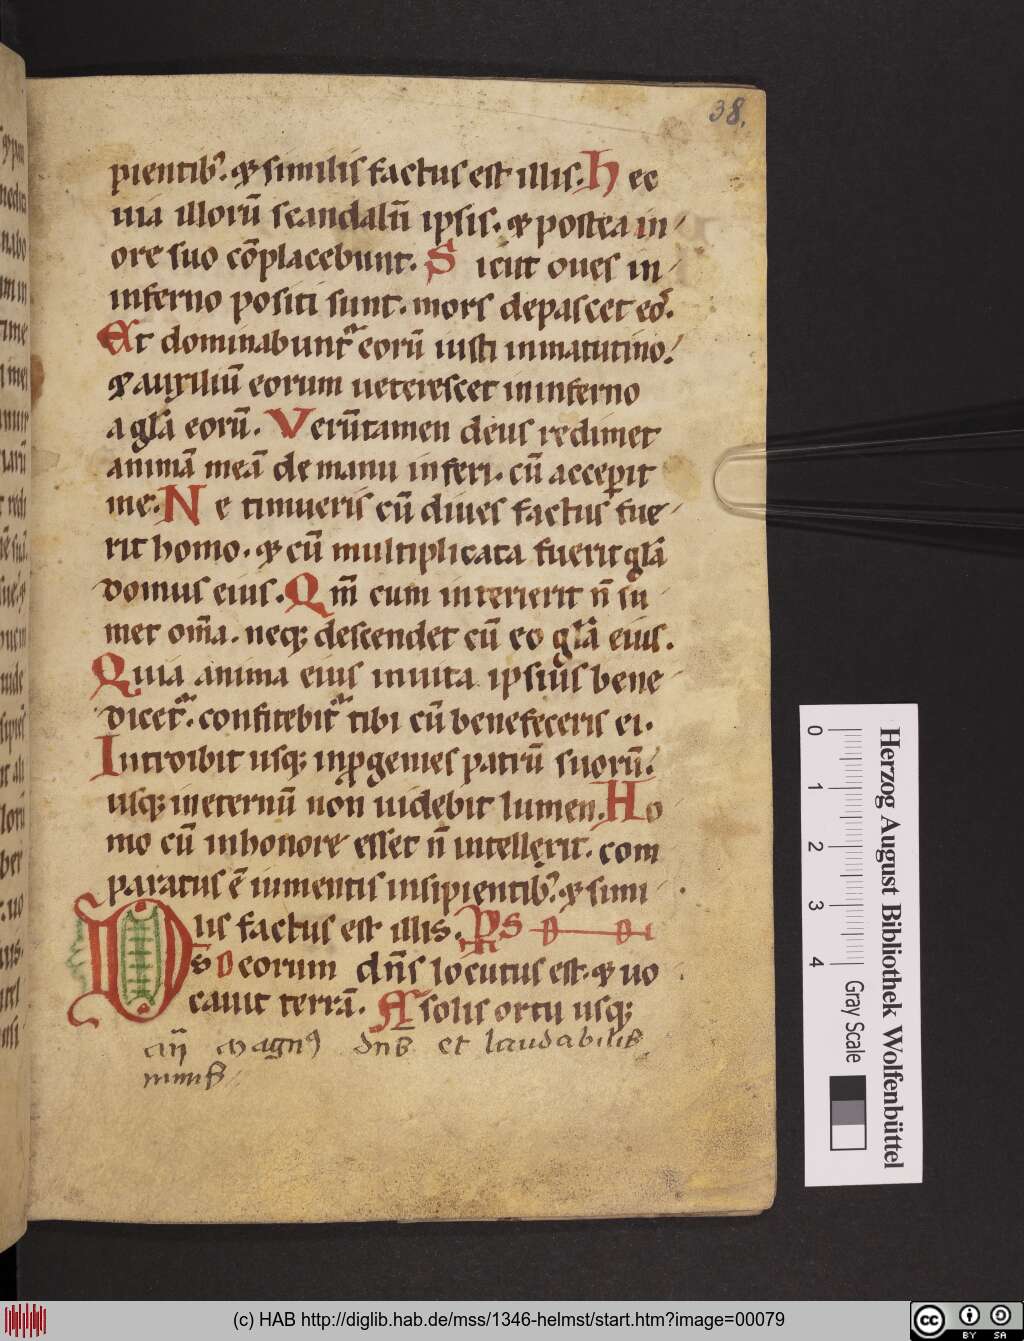 38.
pientib᷒. & similis factus est illis. Hec
uia illorū scandalū ipsis. & postea in
ore suo cōplacebunt. Sicut oues in
inferno positi sunt. mors depascet eos.
Et dominabunt᷑ eorū iusti in matutino.
& auxiliū eorum ueterescet in inferno
a glā eorū. Verūtamen deus redimet
animā meā de manu inferi. cū acceperit
me. Ne timueris cū diues factus fue
rit homo. & cū multiplicata fuerit glā
domus eius. Qm̄ cum interierit n̄ su
met om̄a. neq; descendet cū eo glā eius.
Quia anima eius in uita ipsius bene
dicet᷑. confitebit᷑ tibi cū benefeceris ei.
Introibit usq; in ꝓgenies patrū suorū.
usq; in eternū non uidebit lumen. Ho
mo cū in honore esset n̄ intellexit. com
paratus ē iumentis insipientib᷒. & simi
lis factus est illis. Ps
Ds Deorum dn̄s locutus est. & uo
cauit terrā. A solis ortu usq;
an̄ Magn᷒ dn̄s et laudabilis
nimis
Herzog August Bibliothek Wolfenbüttel
0 1 2 3 4 Gray Scale
(c) HAB http://diglib.hab.de/mss/1346-helmst/start.htm?image=00079
cc BY SA